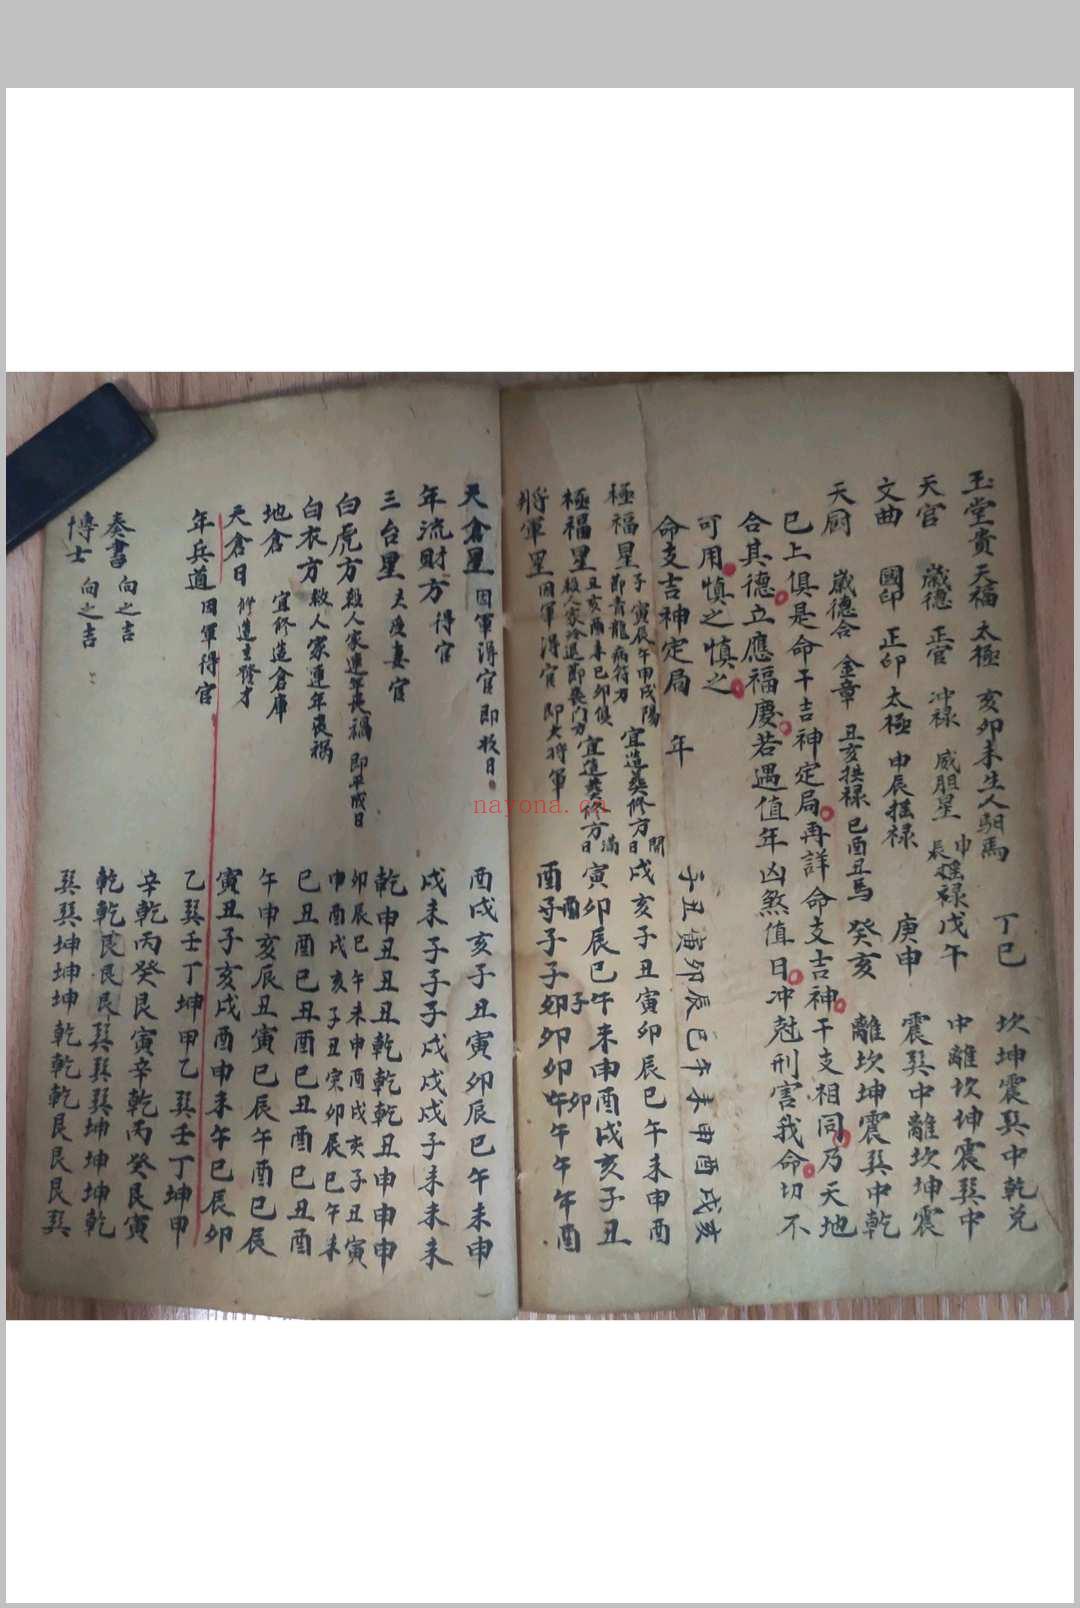 玉堂貴 天福 太極 亥卯未生人馹馬 丁巳 坎坤震巽中乾兌
天官 歲德 正官 冲禄 威胆星 申辰 搖禄 戊午 中離坎坤震巽中
文曲 國印 正印 太極 申辰搖禄 庚申 震巽中離坎坤震
天厨 歲德合 金章 丑亥拱禄 巳酉丑馬 癸亥 離坎坤震巽中乾
已上俱是命干吉神定局再詳命支吉神干支相同乃天地
合其德立應福慶若遇值年凶煞值日冲尅刑害我命切不
可用慎之慎之
命支吉神定局 年 子丑寅卯辰巳午未申酉戌亥
極福星 子寅辰午申戌陽 即青龍病符方 宜造葬修方 開日 戌亥子丑寅卯辰巳午未申酉
極福星 丑亥酉未巳卯 殺人家冷退即喪门方 宜造葬修方 滿日 寅卯辰巳午未申酉戌亥子丑
將軍星 因軍得官 即大將軍 酉子子子卯卯卯午午午酉
酉 子 卯
天倉星 因軍得官 即收日 酉戌亥子丑寅卯辰巳午未申
年流財方 得官 戌未子子子戌戌戌子未未未
三台星 夫受妻官 乾申丑丑丑乾乾乾丑申申申
白虎方 殺人家連年喪禍 即平成日 卯辰巳午未申酉戌亥子丑寅
申酉戌亥子丑寅卯辰巳午未
白衣方 殺人家連年喪祸 巳丑酉巳丑酉巳丑酉巳丑酉
地倉 宜修造倉庫 午申亥辰丑寅巳辰午酉巳辰
天倉日 修造主發才 寅丑子亥戌酉申未午巳辰卯
年兵道 因軍得官 乙巽壬丁坤甲乙巽壬丁坤甲
辛乾丙癸艮寅辛乾丙癸艮寅
奏書 向之吉 乾乾艮艮艮巽巽巽坤坤坤乾
博士 向之吉 巽巽坤坤坤乾乾乾艮艮艮巽
nayona.cn